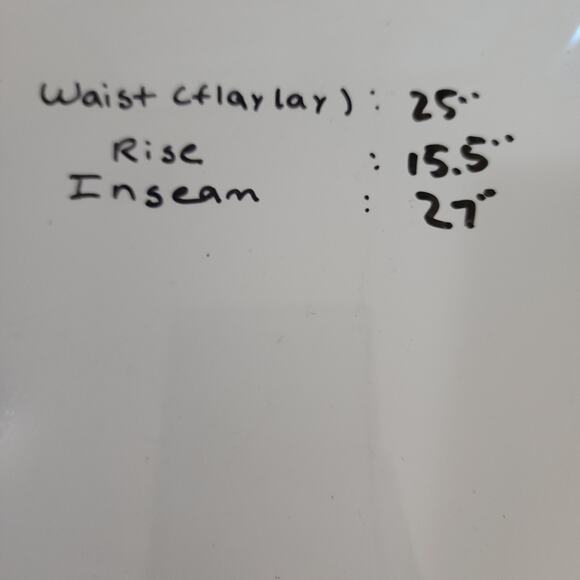 Waist (flaylay) : 25"
Rise : 15.5"
Inseam : 27"